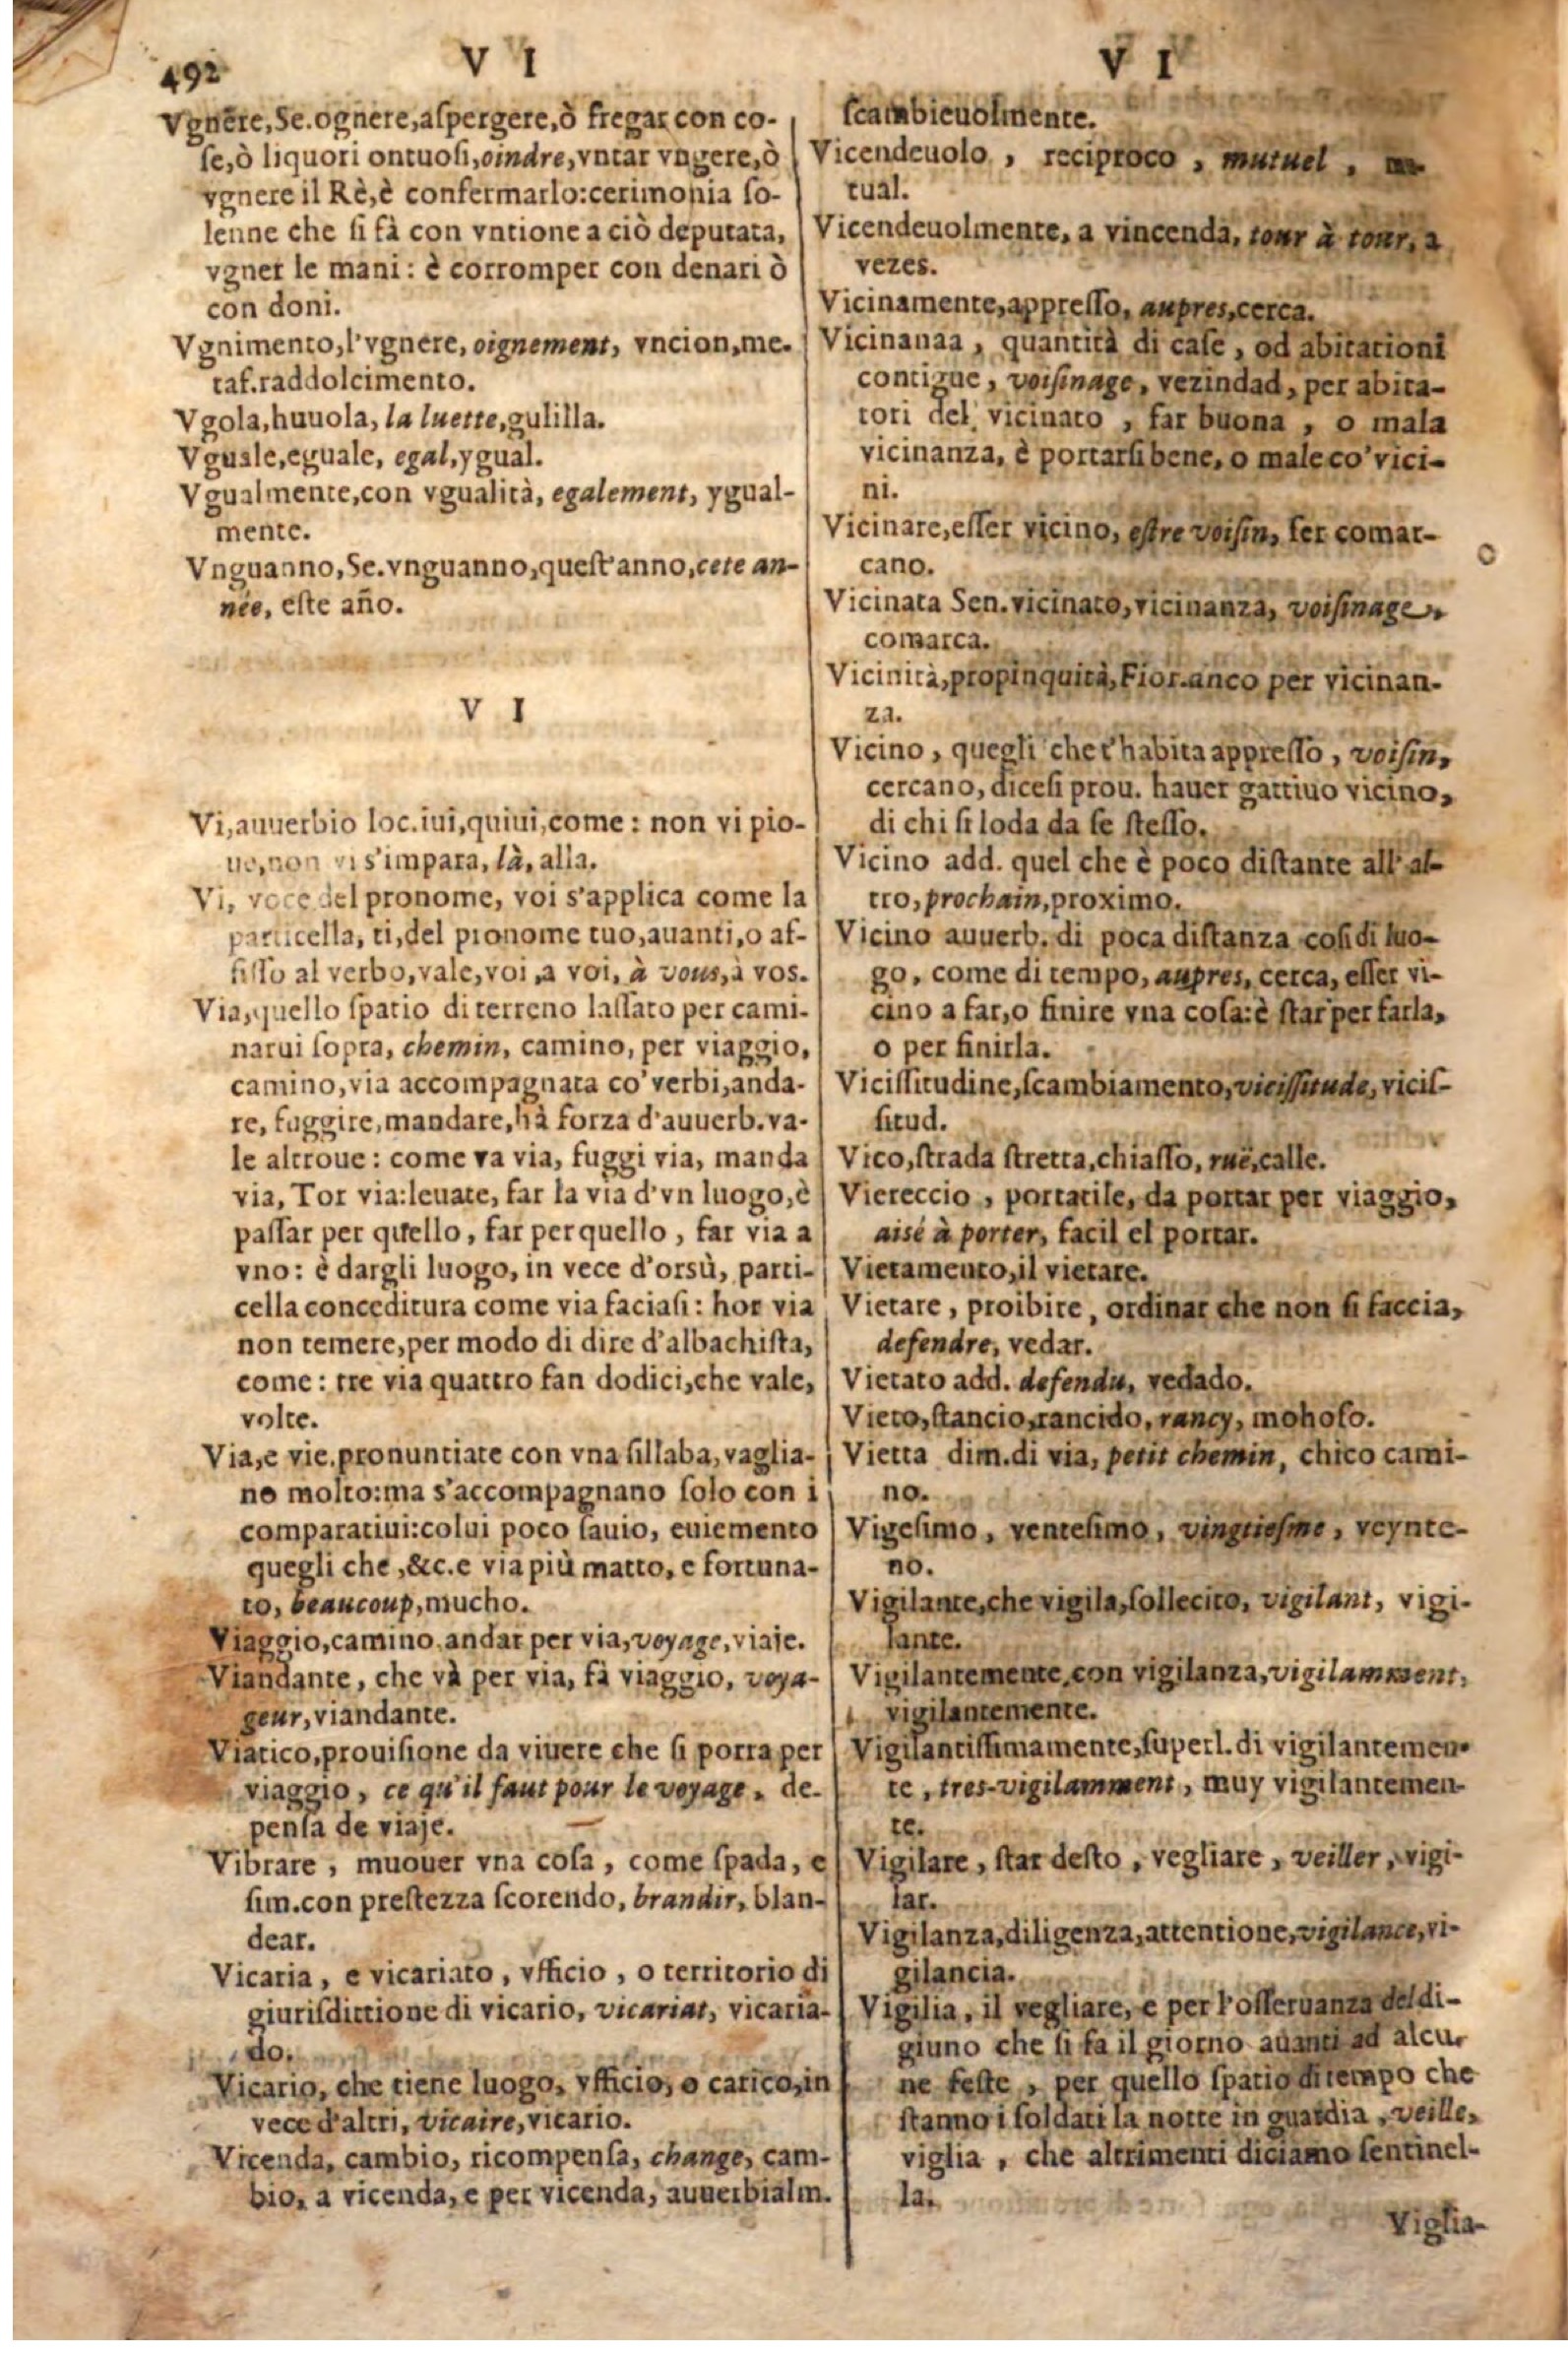 492
V I
V I
Vgnere,Se.ognere,aſpergere,ò fregar con co-
ſe,ò liquori ontuoſi,oindre,vntar vngere,ò
vgnere il Rè,è confermarlo:cerimonia ſo-
lenne che ſi fà con vntione a ciò deputata,
vgner le mani: è corromper con denari ò
con doni.
Vgnimento,l'vgnere, oignement, vncion,me.
taf.raddolcimento.
Vgola,huuola, la luette,gulilla.
Vguale,eguale, egal,ygual.
Vgualmente,con vgualità, egalement, ygual-
mente.
Vnguanno,Se.vnguanno,queſt'anno,cete an-
née, eſte año.
V I
Vi,auuerbio loc.iui,quiui,come: non vi pio-
ue,non vi s'impara, là, alla.
Vi, voce del pronome, voi s'applica come la
particella, ti,del pronome tuo,auanti,o af-
fiſſo al verbo,vale,voi,a voi, à vous,à vos.
Via,quello ſpatio di terreno laſſato per cami-
narui ſopra, chemin, camino, per viaggio,
camino,via accompagnata co'verbi,anda-
re, fuggire,mandare,hà forza d'auuerb.va-
le altroue: come va via, fuggi via, manda
via, Tor via:leuate, far la via d'vn luogo,è
paſſar per quello, far per quello, far via a
vno: è dargli luogo, in vece d'orsù, parti-
cella conceditura come via faciaſi: hor via
non temere,per modo di dire d'albachiſta,
come: tre via quattro fan dodici,che vale,
volte.
Via,e vie.pronuntiate con vna ſillaba,vaglia-
no molto:ma s'accompagnano ſolo con i
comparatiui:colui poco ſauio, euiemento
quegli che ,&c.e via più matto, e fortuna-
to, beaucoup,mucho.
Viaggio,camino.andar per via,voyage,viaje.
Viandante, che và per via, fà viaggio, voya-
geur,viandante.
Viatico,prouiſione da viuere che ſi porra per
viaggio, ce qu'il faut pour le voyage, de-
penſa de viaje.
Vibrare, muouer vna coſa, come ſpada, e
ſim.con preſtezza ſcorendo, brandir, blan-
dear.
Vicaria, e vicariato, vfficio, o territorio di
giuriſdittione di vicario, vicariat, vicaria-
do.
Vicario, che tiene luogo, vfficio, o carico,in
vece d'altri, vicaire,vicario.
Vicenda, cambio, ricompenſa, change, cam-
bio, a vicenda, e per vicenda, auuerbialm.
ſcambieuolmente.
Vicendeuolo, reciproco, mutuel,
tual.
Vicendeuolmente, a vincenda, tour à tour, a
vezes.
Vicinamente,appreſſo, aupres,cerca.
Vicinanaa, quantità di caſe, od abitationi
contigue, voiſinage, vezindad, per abita-
tori del vicinato, far buona, o mala
vicinanza, è portarſi bene, o male co'vici-
ni.
Vicinare,eſſer vicino, eſtre voiſin, ſer comar-
cano.
Vicinata Sen.vicinato,vicinanza, voiſinage,
comarca.
Vicinità,propinquità,Fior.anco per vicinan-
za.
Vicino, quegli che t'habita appreſſo, voiſin,
cercano, diceſi prou. hauer gattiuo vicino,
di chi ſi loda da ſe ſteſſo.
Vicino add. quel che è poco diſtante all'al-
tro,prochain,proximo.
Vicino auuerb. di poca diſtanza coſi di luo-
go, come di tempo, aupres, cerca, eſſer vi-
cino a far,o finire vna coſa:è ſtar per farla,
o per finirla.
Viciſſitudine,ſcambiamento,viciſſitude,viciſ-
ſitud.
Vico,ſtrada ſtretta,chiaſſo, ruë,calle.
Viereccio, portatile, da portar per viaggio,
aisé à porter, facil el portar.
Vietamento,il vietare.
Vietare, proibire, ordinar che non ſi faccia,
defendre, vedar.
Vietato add. defendu, vedado.
Vieto,ſtancio,rancido, rancy, mohoſo.
Vietta dim.di via, petit chemin, chico cami-
no.
Vigeſimo, venteſimo, vingtieſme, veynte-
no.
Vigilante,che vigila,ſollecito, vigilant, vigi-
lante.
Vigilantemente,con vigilanza,vigilamment,
vigilantemente.
Vigilantiſſimamente,ſuperl.di vigilantemen-
te, tres-vigilamment, muy vigilantemen-
te.
Vigilare, ſtar deſto, vegliare, veiller, vigi-
lar.
Vigilanza,diligenza,attentione,vigilance,vi-
gilancia.
Vigilia, il vegliare, e per l'oſſeruanza del di-
giuno che ſi fa il giorno auanti ad alcu-
ne feſte, per quello ſpatio di tempo che
ſtanno i ſoldati la notte in guardia, veille,
viglia, che altrimenti diciamo ſentinel-
la.
Viglia-